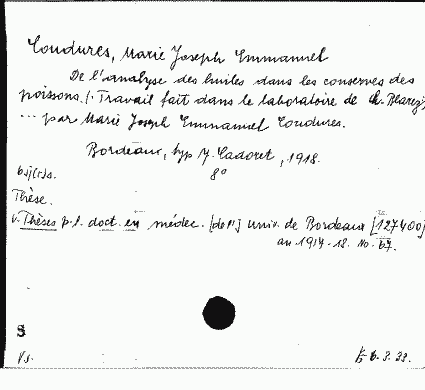 Coudures, Marie Joseph Emmanuel
De l'analyse des huiles dans les conserves des
poissons. (Travail fait dans le laboratoire de Ch. Blarez)
... par Marie Joseph Emmanuel Coudures.
Bordeaux, typ Y. Cadoret, 1918.
8°
Thèse.
v. Thèses p.l. doct. en médec. [de l'] Univ. de Bordeaux [127400]
an 1917-18. No. 67.
S